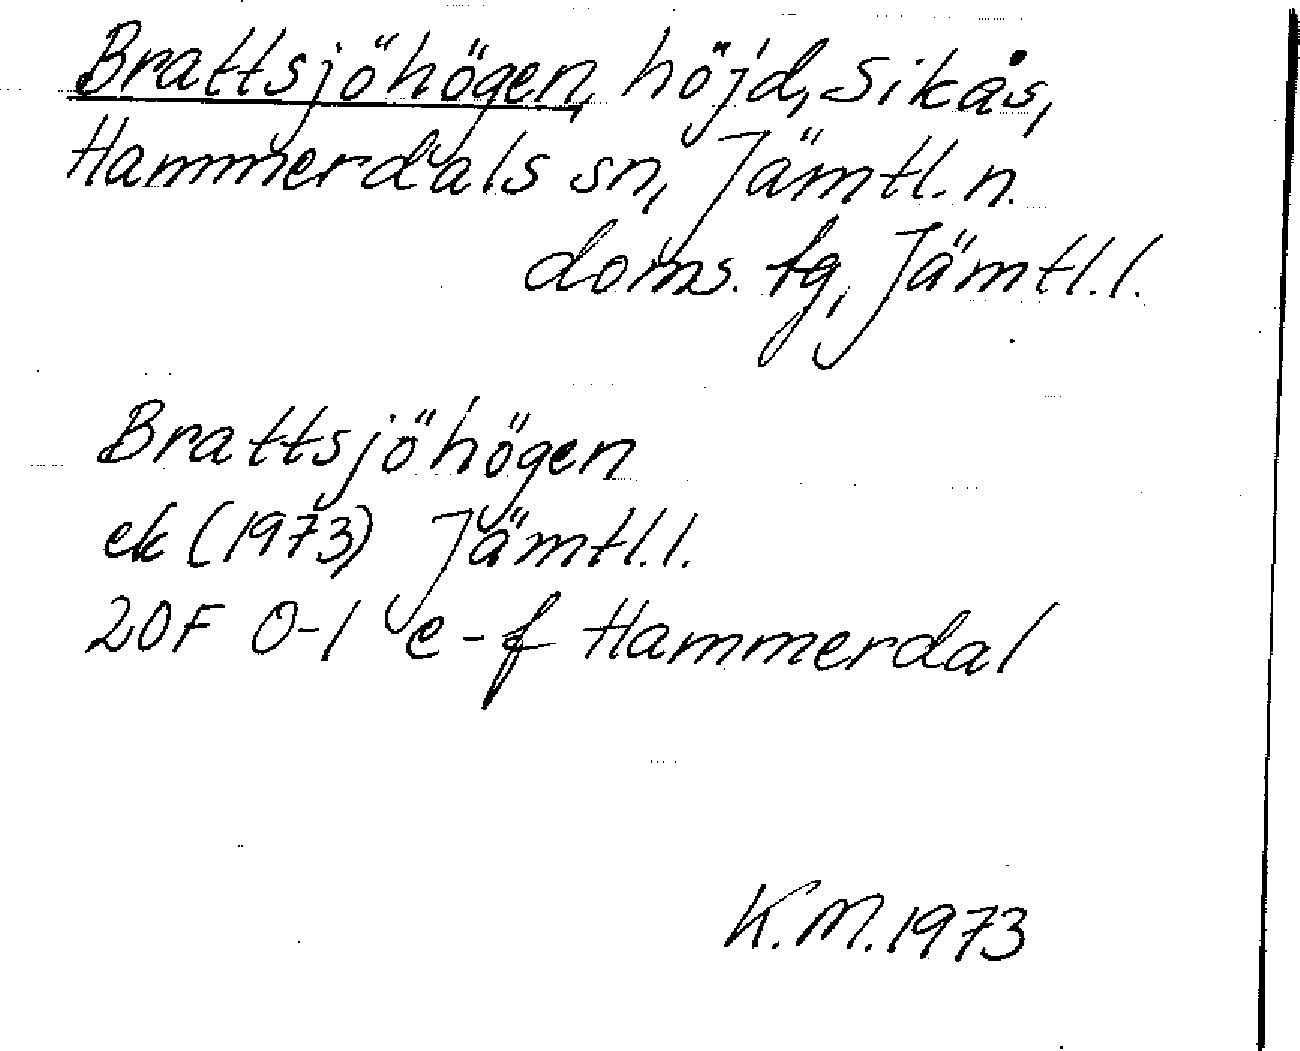 Brattsjöhögen, höjd, Sikås,
Hammerdals sn, Jämtl. n.
doms. tg, Jämtl. l.
Brattsjöhögen
ek (1973) Jämtl. l.
20F 0-1 e-f Hammerdal
K. M. 1973